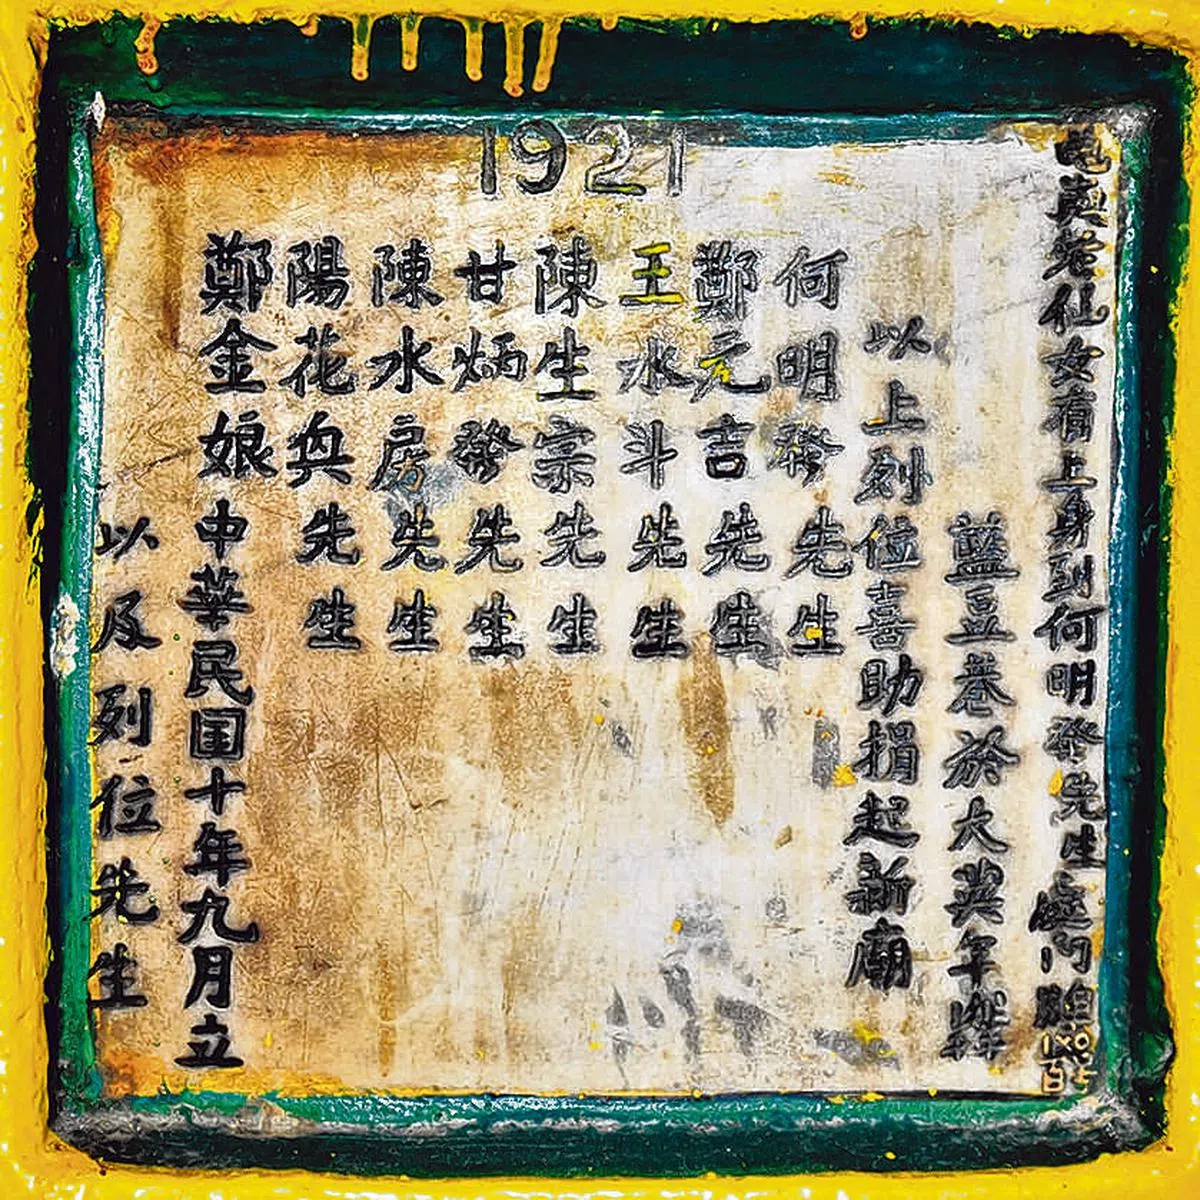 1921
仙女有上身到何明發先生處門牌
藍豆巷於大
年
以上列位喜助捐起新廟
何明發先生
鄭元吉先生
王水斗先生
陳生宗先生
甘炳發先生
陳水房先生
陽花興先生
鄭金娘
中華民国十年九月立
以及列位先生